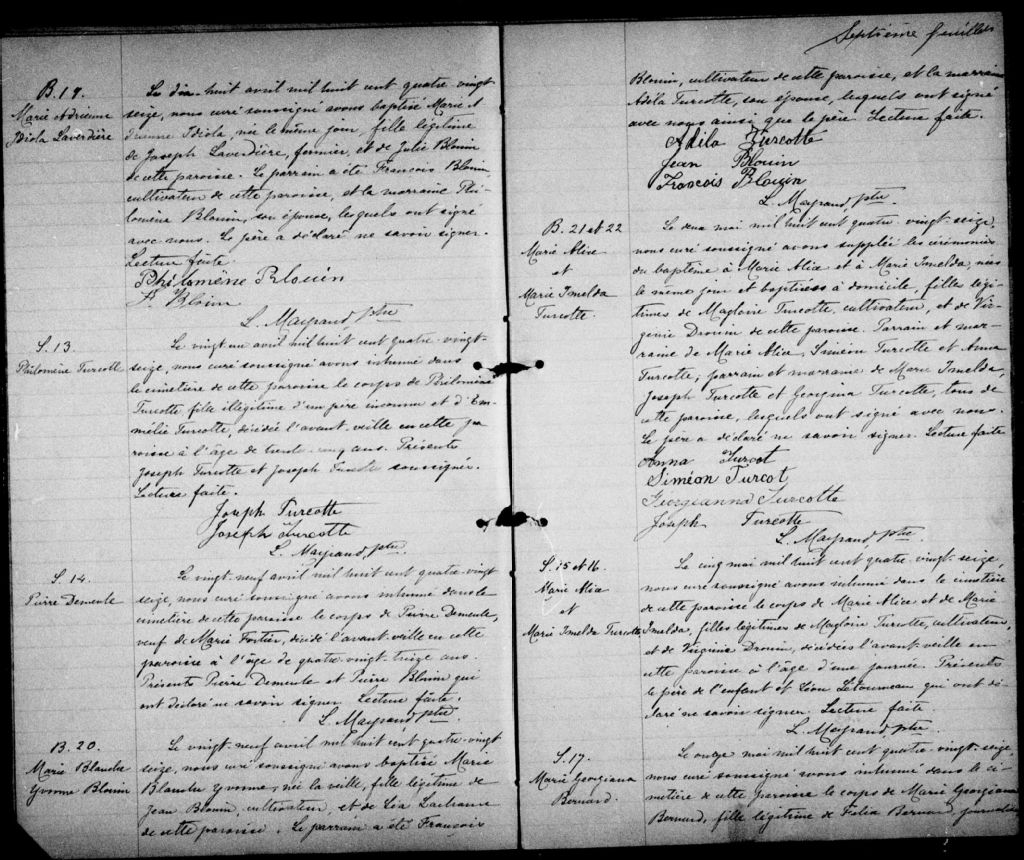 B. 19.
Marie Adrienne
Idiola Laverdière
Le dix-huit avril mil huit cent quatre-vingt
seize, nous curé soussigné avons baptisé Marie A
drienne Idiola, née le même jour, fille légitime
de Joseph Laverdière, fermier, et de Julie Blouin
de cette paroisse. Le parrain a été François Blouin,
cultivateur de cette paroisse, et la marraine Phi-
lomène Blouin, son épouse, lesquels ont signé
avec nous. Le père a déclaré ne savoir signer.
Lecture faite.
Philomène Blouin
F. Blouin
L. Mayrand, ptre
S. 13.
Philomène Turcotte
Le vingt-un avril mil huit cent quatre-vingt-
seize, nous curé soussigné avons inhumé dans
le cimetière de cette paroisse le corps de Philomène
Turcotte fille illégitime d'un père inconnu et d'Em-
mélie Turcotte, décédée l'avant-veille en cette pa
roisse à l'âge de trente-cinq ans. Présents
Joseph Turcotte et Joseph Turcotte soussignés.
Lecture faite.
Joseph Turcotte
Joseph Turcotte
L. Mayrand, ptre
S. 14.
Pierre Demeule
Le vingt-neuf avril mil huit cent quatre-vingt
seize, nous curé soussigné avons inhumé dans le
cimetière de cette paroisse le corps de Pierre Demeule,
veuf de Marie Fortier, décédé l'avant-veille en cette
paroisse à l'âge de quatre-vingt-treize ans.
Présents Pierre Demeule et Pierre Blouin qui
ont déclaré ne savoir signer. Lecture faite.
L. Mayrand, ptre
B. 20.
Marie Blanche
Yvonne Blouin
Le vingt-neuf avril mil huit cent quatre-vingt
seize, nous curé soussigné avons baptisé Marie
Blanche Yvonne, née la veille, fille légitime de
Jean Blouin, cultivateur, et de Léa Lachance
de cette paroisse. Le parrain a été François
Septième feuillet
Blouin, cultivateur de cette paroisse, et la marraine
Adila Turcotte, son épouse, lesquels ont signé
avec nous ainsi que le père. Lecture faite.
Adila Turcotte
Jean Blouin
François Blouin
L. Mayrand, ptre
B. 21 et 22
Marie Alice
et
Marie Imelda
Turcotte.
Le deux mai mil huit cent quatre-vingt-seize,
nous curé soussigné avons suppléé les cérémonies
du baptême à Marie Alice et à Marie Imelda, nées
le même jour et baptisées à domicile, filles légi-
times de Magloire Turcotte, cultivateur, et de Vir-
ginie Drouin de cette paroisse. Parrain et mar-
raine de Marie Alice, Siméon Turcotte et Anna
Turcotte; parrain et marraine de Marie Imelda,
Joseph Turcotte et Georgina Turcotte, tous de
cette paroisse, lesquels ont signé avec nous.
Le père a déclaré ne savoir signer. Lecture faite
Anna Turcot
Siméon Turcot
Georgeanna Turcotte
Joseph Turcotte
L. Mayrand, ptre
S. 15 et 16.
Marie Alice
et
Marie Imelda Turcotte
Le cinq mai mil huit cent quatre-vingt-seize,
nous curé soussigné avons inhumé dans le cimetière
de cette paroisse le corps de Marie Alice et de Marie
Imelda, filles légitimes de Magloire Turcotte, cultivateur,
et de Virginie Drouin, décédées l'avant-veille en
cette paroisse à l'âge d'une journée. Présents
le père de l'enfant et Léon Letourneau qui ont dé-
claré ne savoir signer. Lecture faite
L. Mayrand, ptre
S. 17.
Marie Georgiana
Bernard.
Le onze mai mil huit cent quatre-vingt-seize,
nous curé soussigné avons inhumé dans le ci-
metière de cette paroisse le corps de Marie Georgiana
Bernard, fille légitime de Félix Bernard, journalier